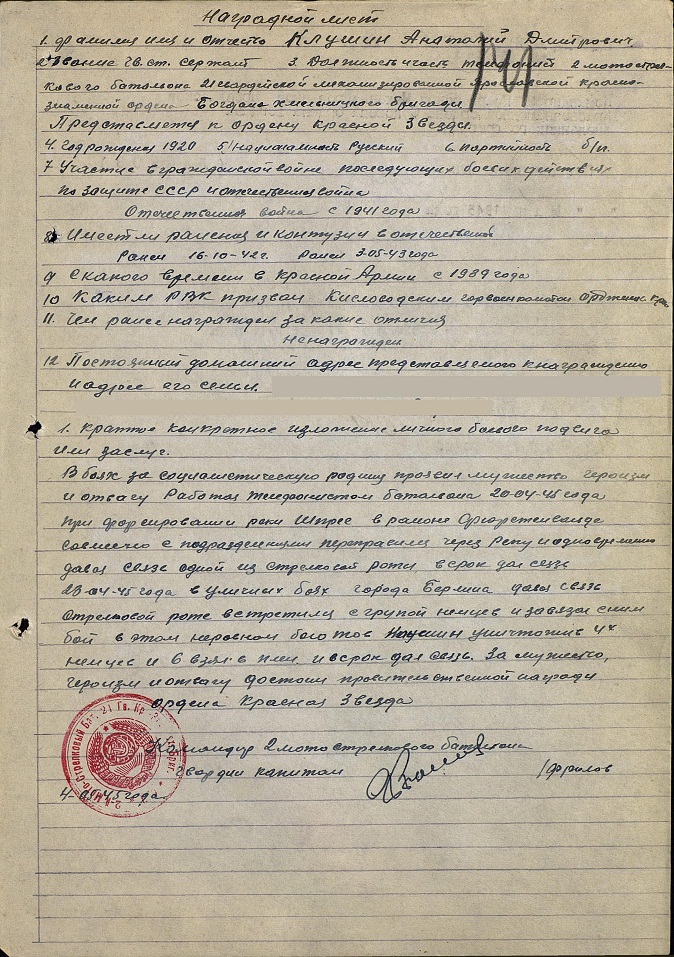 Наградной лист
1. Фамилия имя и отчество Клушин Анатолий Дмитрович
2. Звание Гв. ст. сержант 3. Должность часть телефонист 2 мотострел-
кового батальона 21 гвардейской механизированной красно-
знаменной ордена Богдана Хмельницкого бригады
Представляется к ордену Красной Звезды.
4. Год рождения 1920 5/ Национальность Русский 6. Партийность б/п.
7 Участие в гражданской войне последующих боевых действиях
по защите СССР и отечественная война
Отечественная война с 1941 года
8. Имеет ли ранения и контузии в отечественной
Ранен 16-10-42г. Ранен 3-05-43 года
9 С какого времени в Красной Армии с 1939 года
10 Каким РВК призван Кисловодским горвоенкоматом
11. Чем ранее награжден за какие отличия
Ненагражден
12 Постоянный домашний адрес представляемого к награждению
и адрес его семьи.
1. Краткое конкретное изложение личного боевого подвига
или заслуг.
В боях за социалистическую родину проявил мужество героизм
и отвагу Работая телефонистом батальона 20-04-45 года
при форсировании реки Шпрее в районе
совмесчно с подразделениями переправился через Реку и одновременно
давая связь одной из стрелковой роты, в срок дал связь
23-04-45 года в уличных боях города Берлина давая связь
стрелковой роте встретился с групой немцев и завязал с ними
бой в этом неровном бою тов уничтожив 4х
немцев и 6 взял в плен. и в срок дал связь. За мужество,
героизм и отвагу достоин правительственной награды
ордена Красная Звезда
Командир 2 мотострелкового батальона
Гвардии капитан /Фролов
4-05-45 года